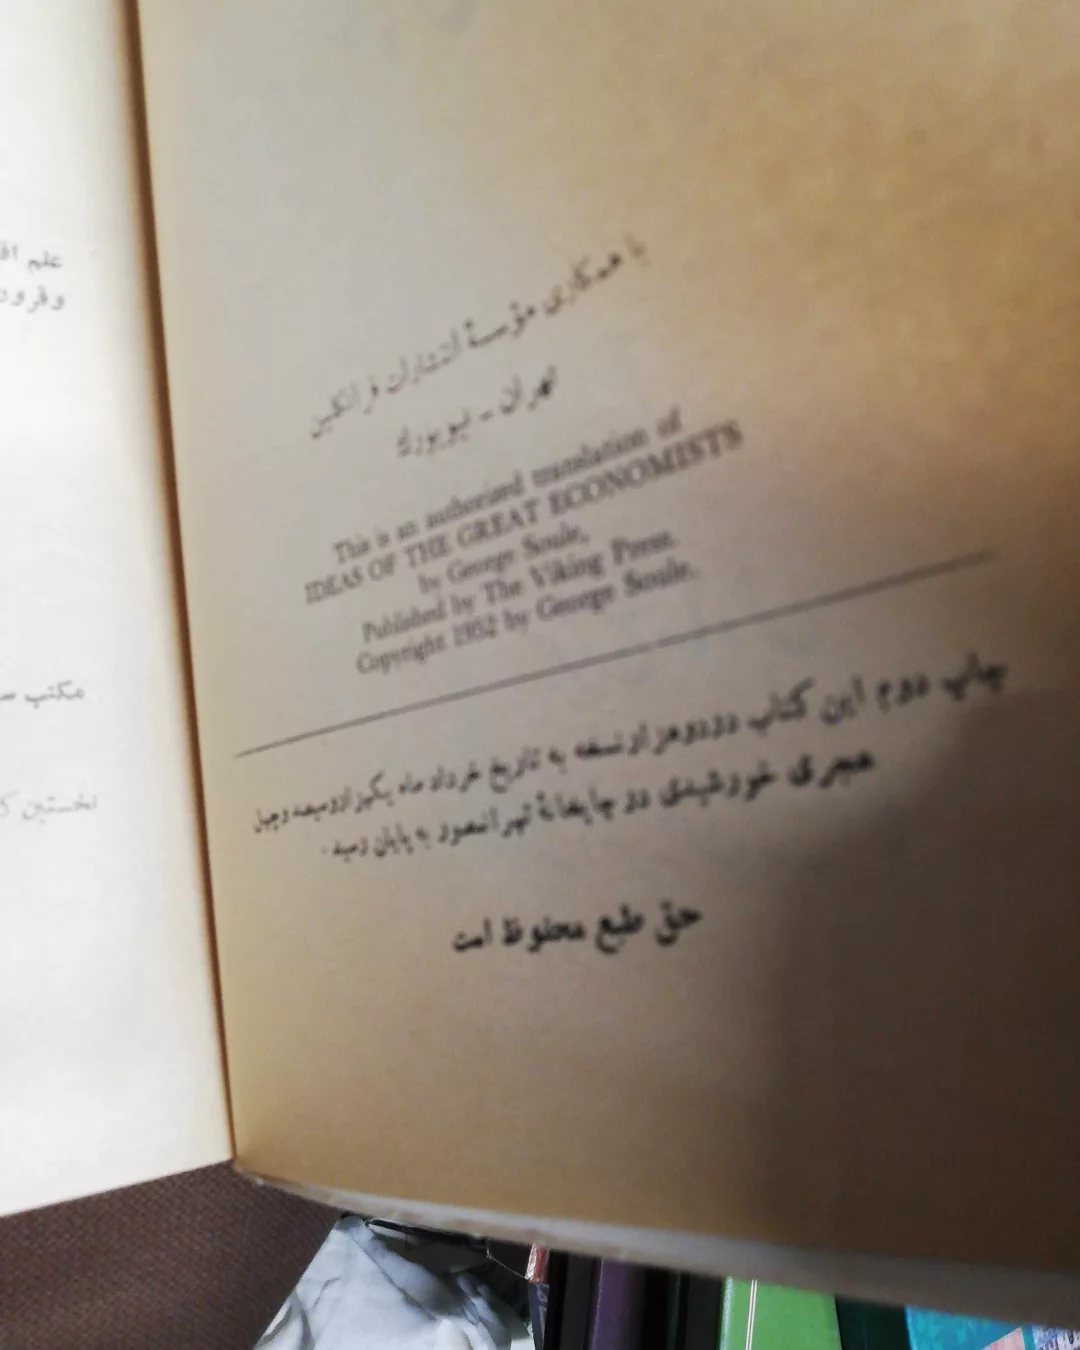 با همکاری مؤسسهٔ انتشارات فرانکلین
تهران - نیویورك
This is an authorized translation of
IDEAS OF THE GREAT ECONOMISTS
by George Soule,
Published by The Viking Press.
Copyright 1952 by George Soule.
چاپ دوم این کتاب در دو هزار نسخه به تاریخ خرداد ماه یکهزار و سیصد و چهل
هجری خورشیدی در چاپخانهٔ تهرانمصور به پایان رسید .
حق طبع محفوظ است
علم
و قرون
مکتب
نخستین